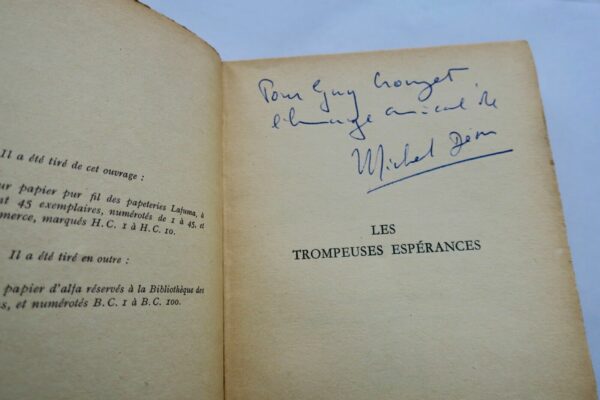 Il a été tiré de cet ouvrage :
ur papier pur fil des papeteries Lafuma, à
nt 45 exemplaires, numérotés de 1 à 45, et
mmerce, marqués H.C. 1 à H.C. 10.
Il a été tiré en outre :
papier d'alfa réservés à la Bibliothèque des
s, et numérotés B.C. 1 à B.C. 100.
Pour Guy Crouzet
l'hommage amical de
Michel Déon
LES
TROMPEUSES ESPÉRANCES